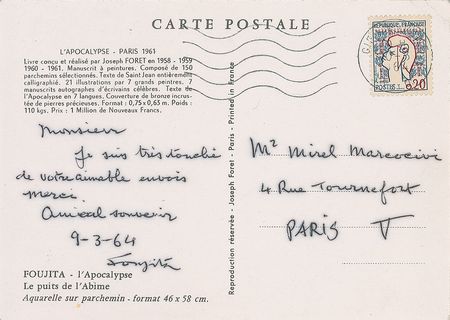 CARTE POSTALE
L'APOCALYPSE - PARIS 1961
Livre conçu et réalisé par Joseph FORET en 1958 - 1959
1960 - 1961. Manuscrit à peintures. Composé de 150
parchemins sélectionnés. Texte de Saint Jean entièrement
calligraphié, 21 illustrations par 7 grands peintres. 7
manuscrits autographes d'écrivains célèbres. Texte de
l'Apocalypse en 7 langues. Couverture de bronze incrus-
tée de pierres précieuses. Format : 0,75x0,65 m. Poids :
110 kgs. Prix : 1 Million de Nouveaux Francs.
Monsieur
Je suis très touché
de votre aimable envois
merci.
Amical souvenir
9-3-64
Foujita
FOUJITA - l'Apocalypse
Le puits de l'Abime
Aquarelle sur parchemin - format 46 x 58 cm.
Reproduction réservée - Joseph Foret - Paris - Printed in France
POSTES
0,20
Mr Mirel Marcocivi
4 Rue Tournefort
PARIS V